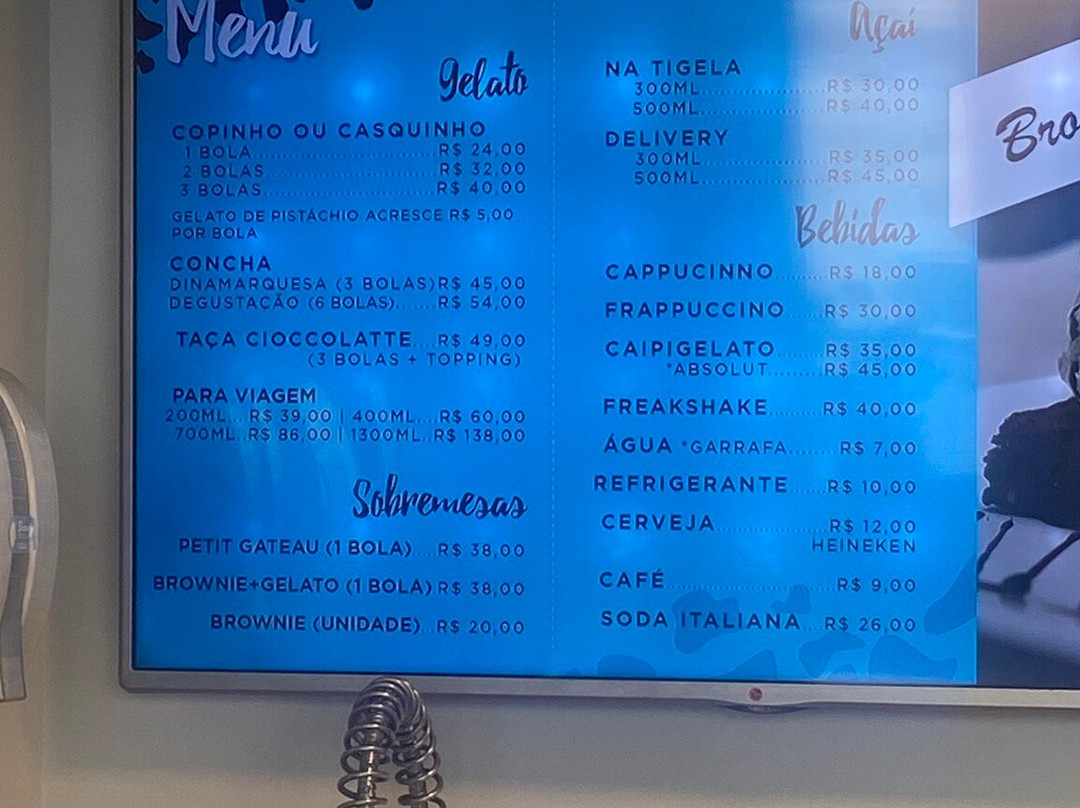 Menu
Gelato
COPINHO OU CASQUINHO
1 BOLA......................R$ 24,00
2 BOLAS....................R$ 32,00
3 BOLAS....................R$ 40,00
GELATO DE PISTÁCHIO ACRESCE R$ 5,00
POR BOLA
CONCHA
DINAMARQUESA (3 BOLAS)R$ 45,00
DEGUSTAÇÃO (6 BOLAS)......R$ 54,00
TAÇA CIOCCOLATTE....R$ 49,00
(3 BOLAS + TOPPING)
PARA VIAGEM
200ML....R$ 39,00 | 400ML....R$ 60,00
700ML..R$ 86,00 | 1300ML..R$ 138,00
Sobremesas
PETIT GATEAU (1 BOLA)....R$ 38,00
BROWNIE+GELATO (1 BOLA) R$ 38,00
BROWNIE (UNIDADE)..R$ 20,00
Açaí
NA TIGELA
300ML...................R$ 30,00
500ML...................R$ 40,00
DELIVERY
300ML...................R$ 35,00
500ML...................R$ 45,00
Bebidas
CAPPUCINNO........R$ 18,00
FRAPPUCCINO......R$ 30,00
CAIPIGELATO........R$ 35,00
*ABSOLUT.........R$ 45,00
FREAKSHAKE........R$ 40,00
ÁGUA *GARRAFA........R$ 7,00
REFRIGERANTE......R$ 10,00
CERVEJA.................R$ 12,00
HEINEKEN
CAFÉ..........................R$ 9,00
SODA ITALIANA...R$ 26,00
Bro